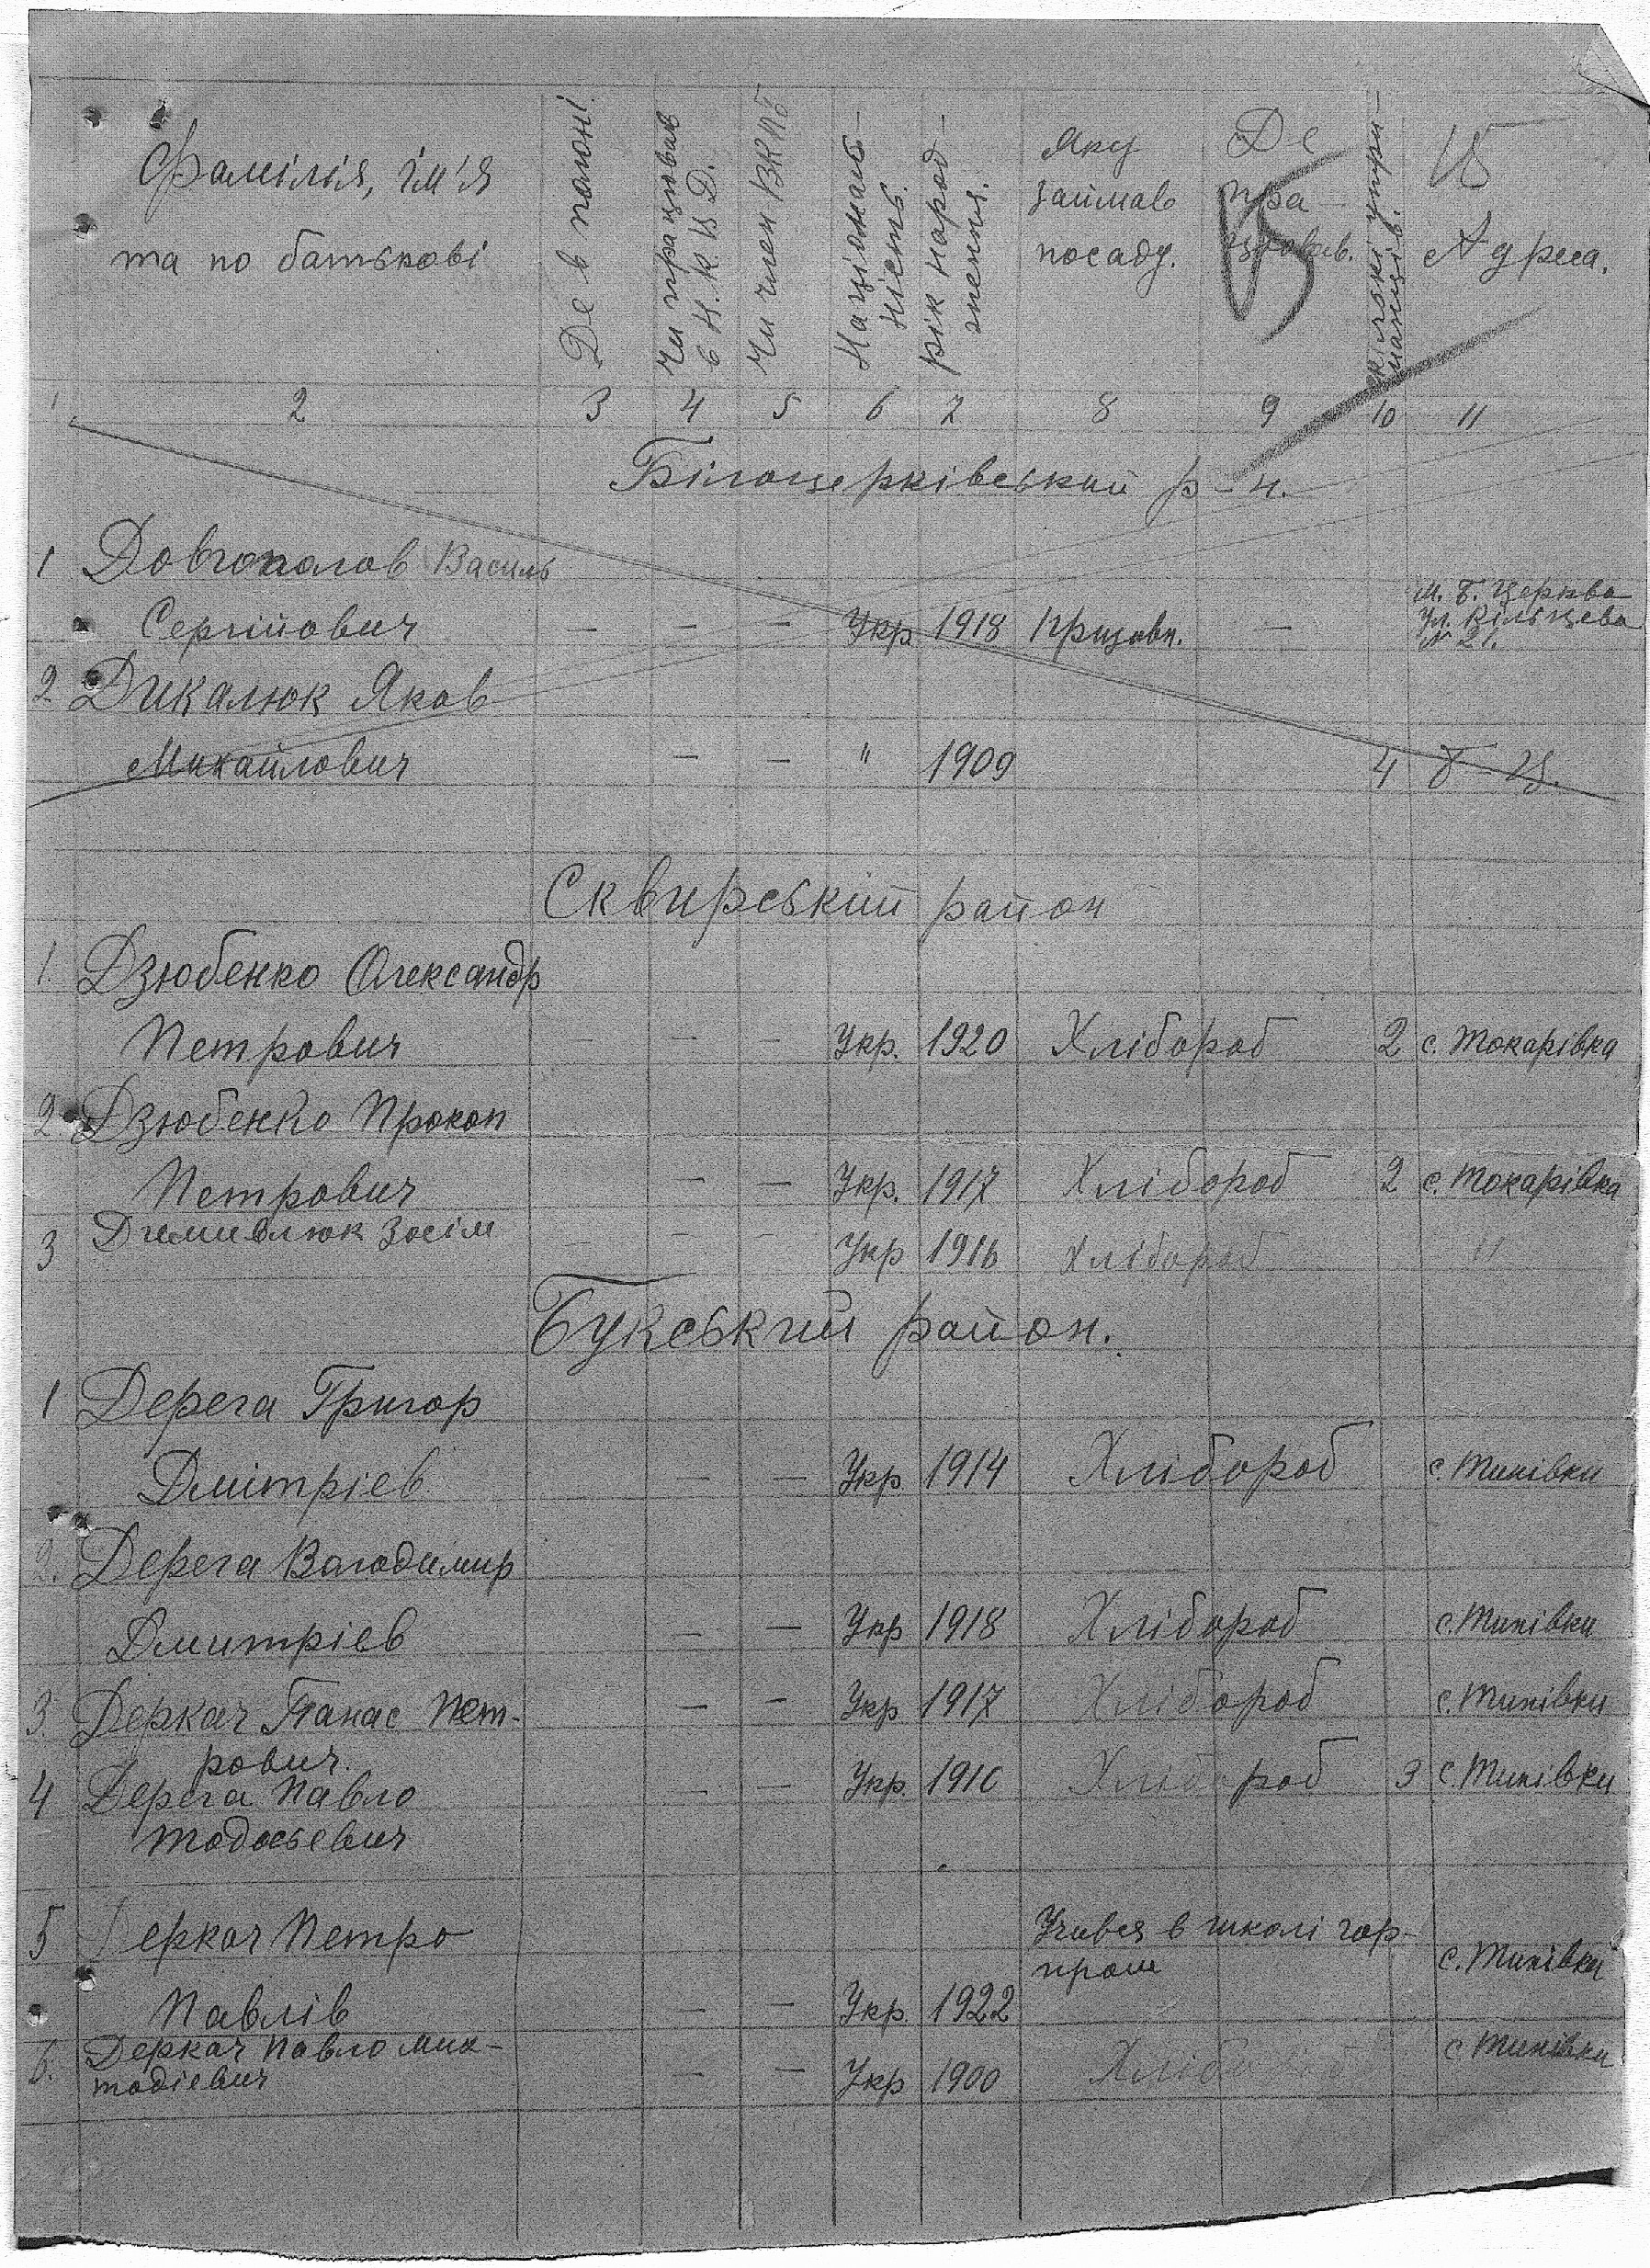 Фамілія, ім'я
та по батькові
Де в полоні
Чи працював
в Н.К.В.Д.
Чи член ВКПб
Націонал-
ність.
Рік народ-
ження.
Яку
займав
посаду.
Де
пра-
цював.
Кількі утри-
манців.
Адреса.
1 2 3 4 5 6 7 8 9 10 11
Білоцерківський р-н.
1 Довгополов Василь
Сергійович — — — Укр 1918 —
м. Б. Церква
Ул. Кільцева
№ 21.
2 Дикалюк Яков
Михайлович — — " 1909 4 Б-Ц.
Сквирський район
1. Дзюбенко Олександр
Петрович — — — Укр. 1920 Хлібороб 2 с. Токарівка
2 Дзюбенко Прокоп
Петрович — — Укр. 1917 Хлібороб 2 с. Токарівка
3 Зосім — — Укр 1916 Хлібороб "
Букський район.
1 Дерега Григор
Дмітріев — — Укр 1914 Хлібороб
2. Дерега Володимир
Дмитріев — — Укр 1918 Хлібороб
3. Деркач Панас Пет-
рович. — — Укр 1917 Хлібороб
4 Дерега Павло — — Укр. 1910 Хлібороб 3
Тодосьевич
5 Деркач Петро
Учився в школі гор-
пром
Павлів — — Укр. 1922
6. Деркач Павло
— — Укр 1900